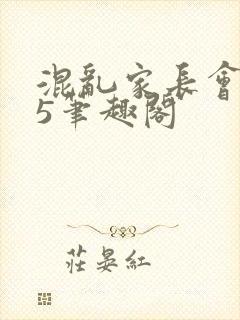 混亂家長會
5筆趣閣
莊晏紅